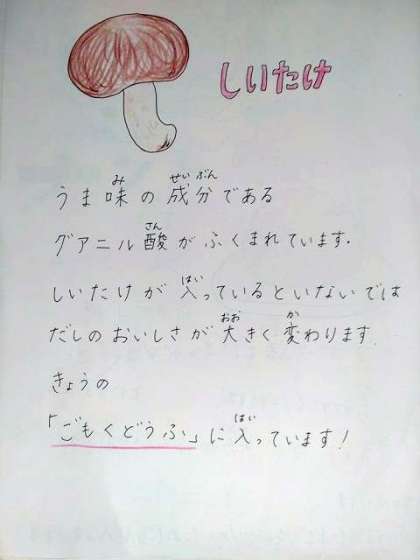 しいたけ
うま味の成分である
グアニル酸がふくまれています.
しいたけが入っているといないでは
だしのおいしさが大きく変わります.
きょうの
「ごもくどうふ」に入っています!